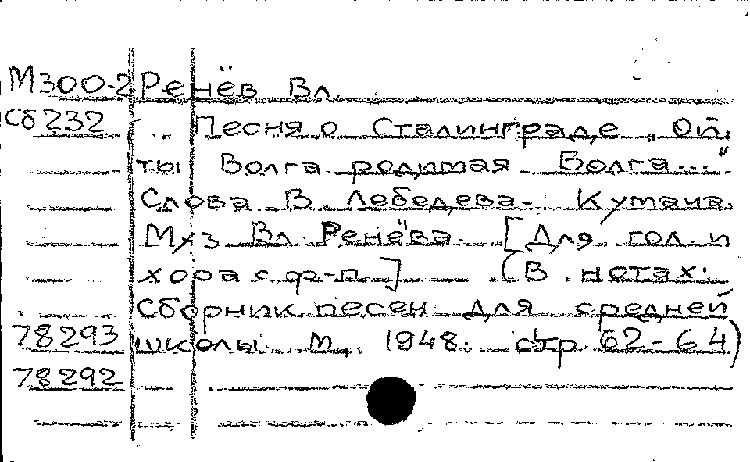 М300-2 Ренёв Вл.
Сб232 Песня о Сталинграде „Ой,
ты Волга родимая Волга..."
Слова В. Лебедева-Кумача.
Муз. Вл. Ренёва. [Для гол. и
хора с ф-п.] (В нотах:
Сборник песен для средней
78293 школы. М., 1948. стр. 62-64)
78292